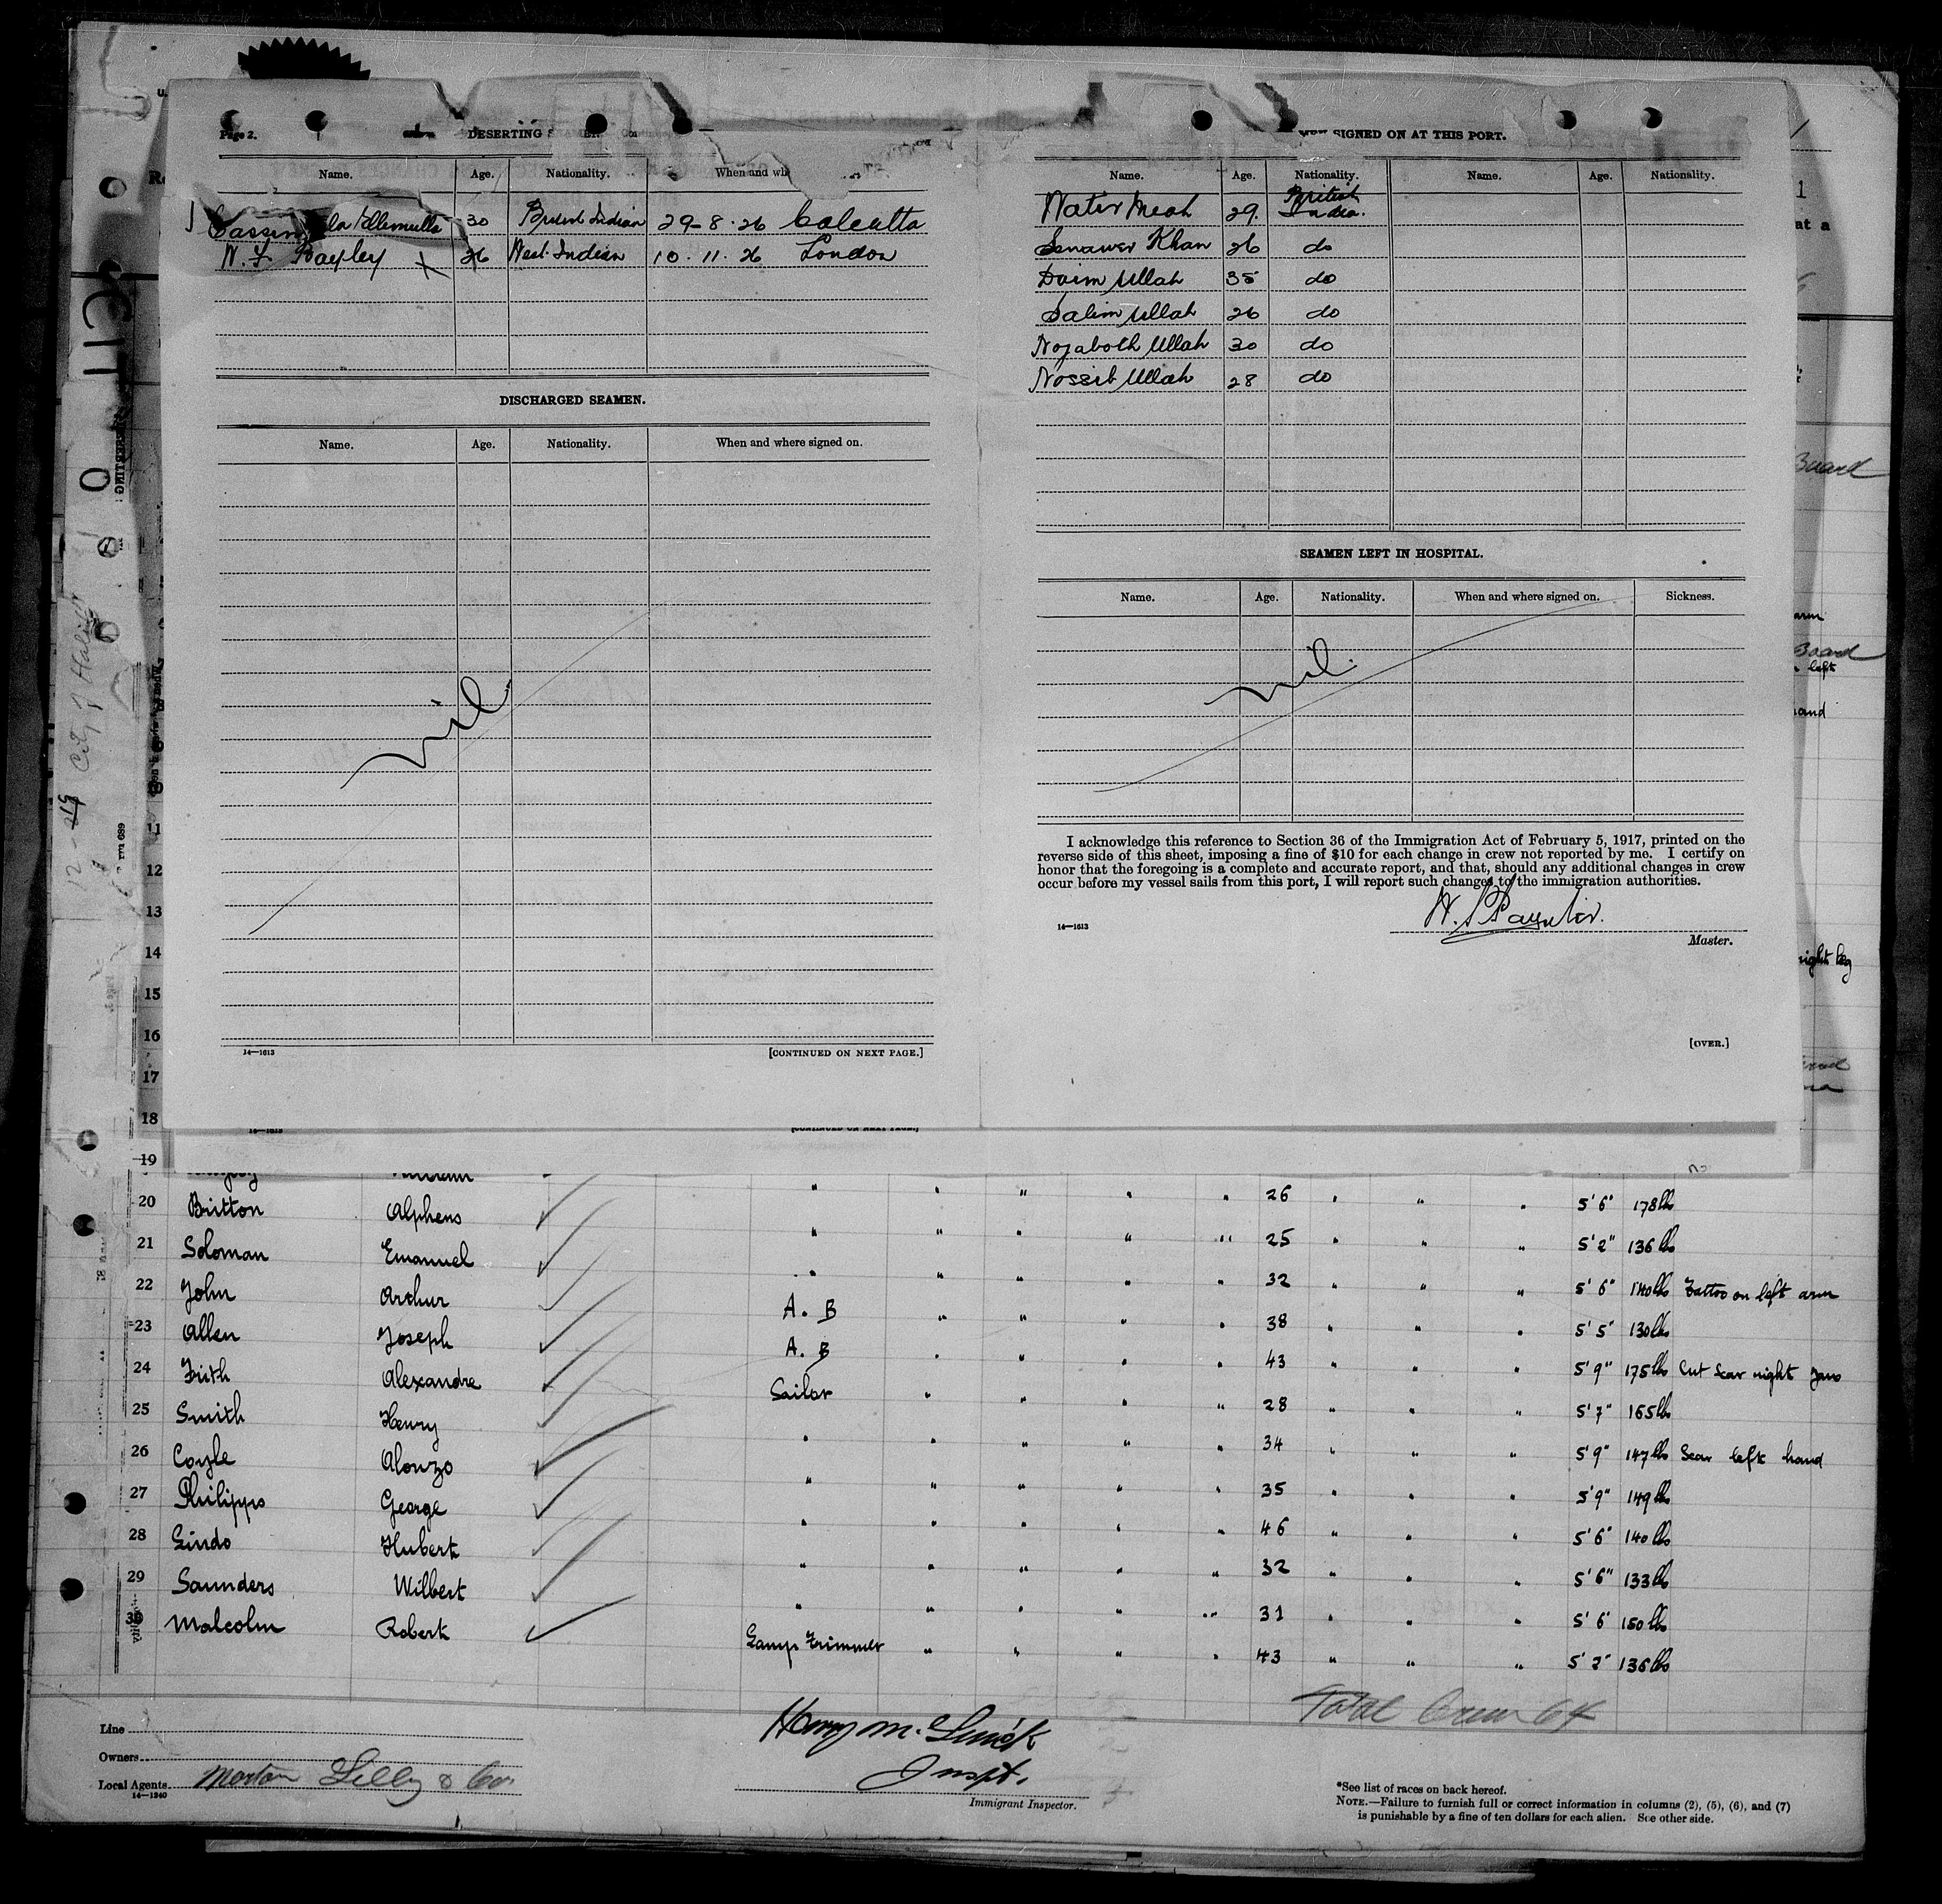 Page 2.
DESERTING
Name. Age. Nationality. When and
1 Cassim 30 British Indian 29-8-26 Calcutta
W. F. Bayley X 26 West Indian 10.11.26 London
DISCHARGED SEAMEN.
Name. Age. Nationality. When and where signed on.
nil
14—1613 [CONTINUED ON NEXT PAGE.]
SIGNED ON AT THIS PORT.
Name. Age. Nationality. Name. Age. Nationality.
Meah 29. British India.
Khan 26 do
Daim Ullah 35 do
Salim Ullah 26 do
Nojaboth Ullah 30 do
Nossib Ullah 28 do
SEAMEN LEFT IN HOSPITAL.
Name. Age. Nationality. When and where signed on. Sickness.
nil.
I acknowledge this reference to Section 36 of the Immigration Act of February 5, 1917, printed on the
reverse side of this sheet, imposing a fine of $10 for each change in crew not reported by me. I certify on
honor that the foregoing is a complete and accurate report, and that, should any additional changes in crew
occur before my vessel sails from this port, I will report such changes to the immigration authorities.
14—1613
Master.
[OVER.]
11
12
13
14
15
16
17
18
19
20 Britton Alphens " " " " " 26 " " " 5'6" 178 lbs
21 Soloman Emanuel " " " " " 25 " " " 5'2" 136 lbs
22 John Arthur " " " " " 32 " " " 5'6" 140 lbs Tattoo on left arm
23 Allen Joseph A.B " " " " 38 " " " 5'5" 130 lbs
24 Frith Alexandre A.B " " " " 43 " " " 5'9" 175 lbs Cut Scar right Jaw
25 Smith Henry Sailor " " " " 28 " " " 5'7" 165 lbs
26 Coyle Alonzo " " " " " 34 " " " 5'9" 147 lbs Scar left hand
27 Philipps George " " " " " 35 " " " 5'9" 149 lbs
28 Lindo Hubert " " " " " 46 " " " 5'6" 140 lbs
29 Saunders Wilbert " " " " " 32 " " " 5'6" 133 lbs
30 Malcolm Robert " " " " " 31 " " " 5'6" 150 lbs
Lamp Trimmer " " " " 43 " " " 5'2" 136 lbs
Total Crew 64
Line
Owners
Local Agents Morton Lilly & Co.
14—1240
Inspt.
Immigrant Inspector.
*See list of races on back hereof.
NOTE.—Failure to furnish full or correct information in columns (2), (5), (6), and (7)
is punishable by a fine of ten dollars for each alien. See other side.